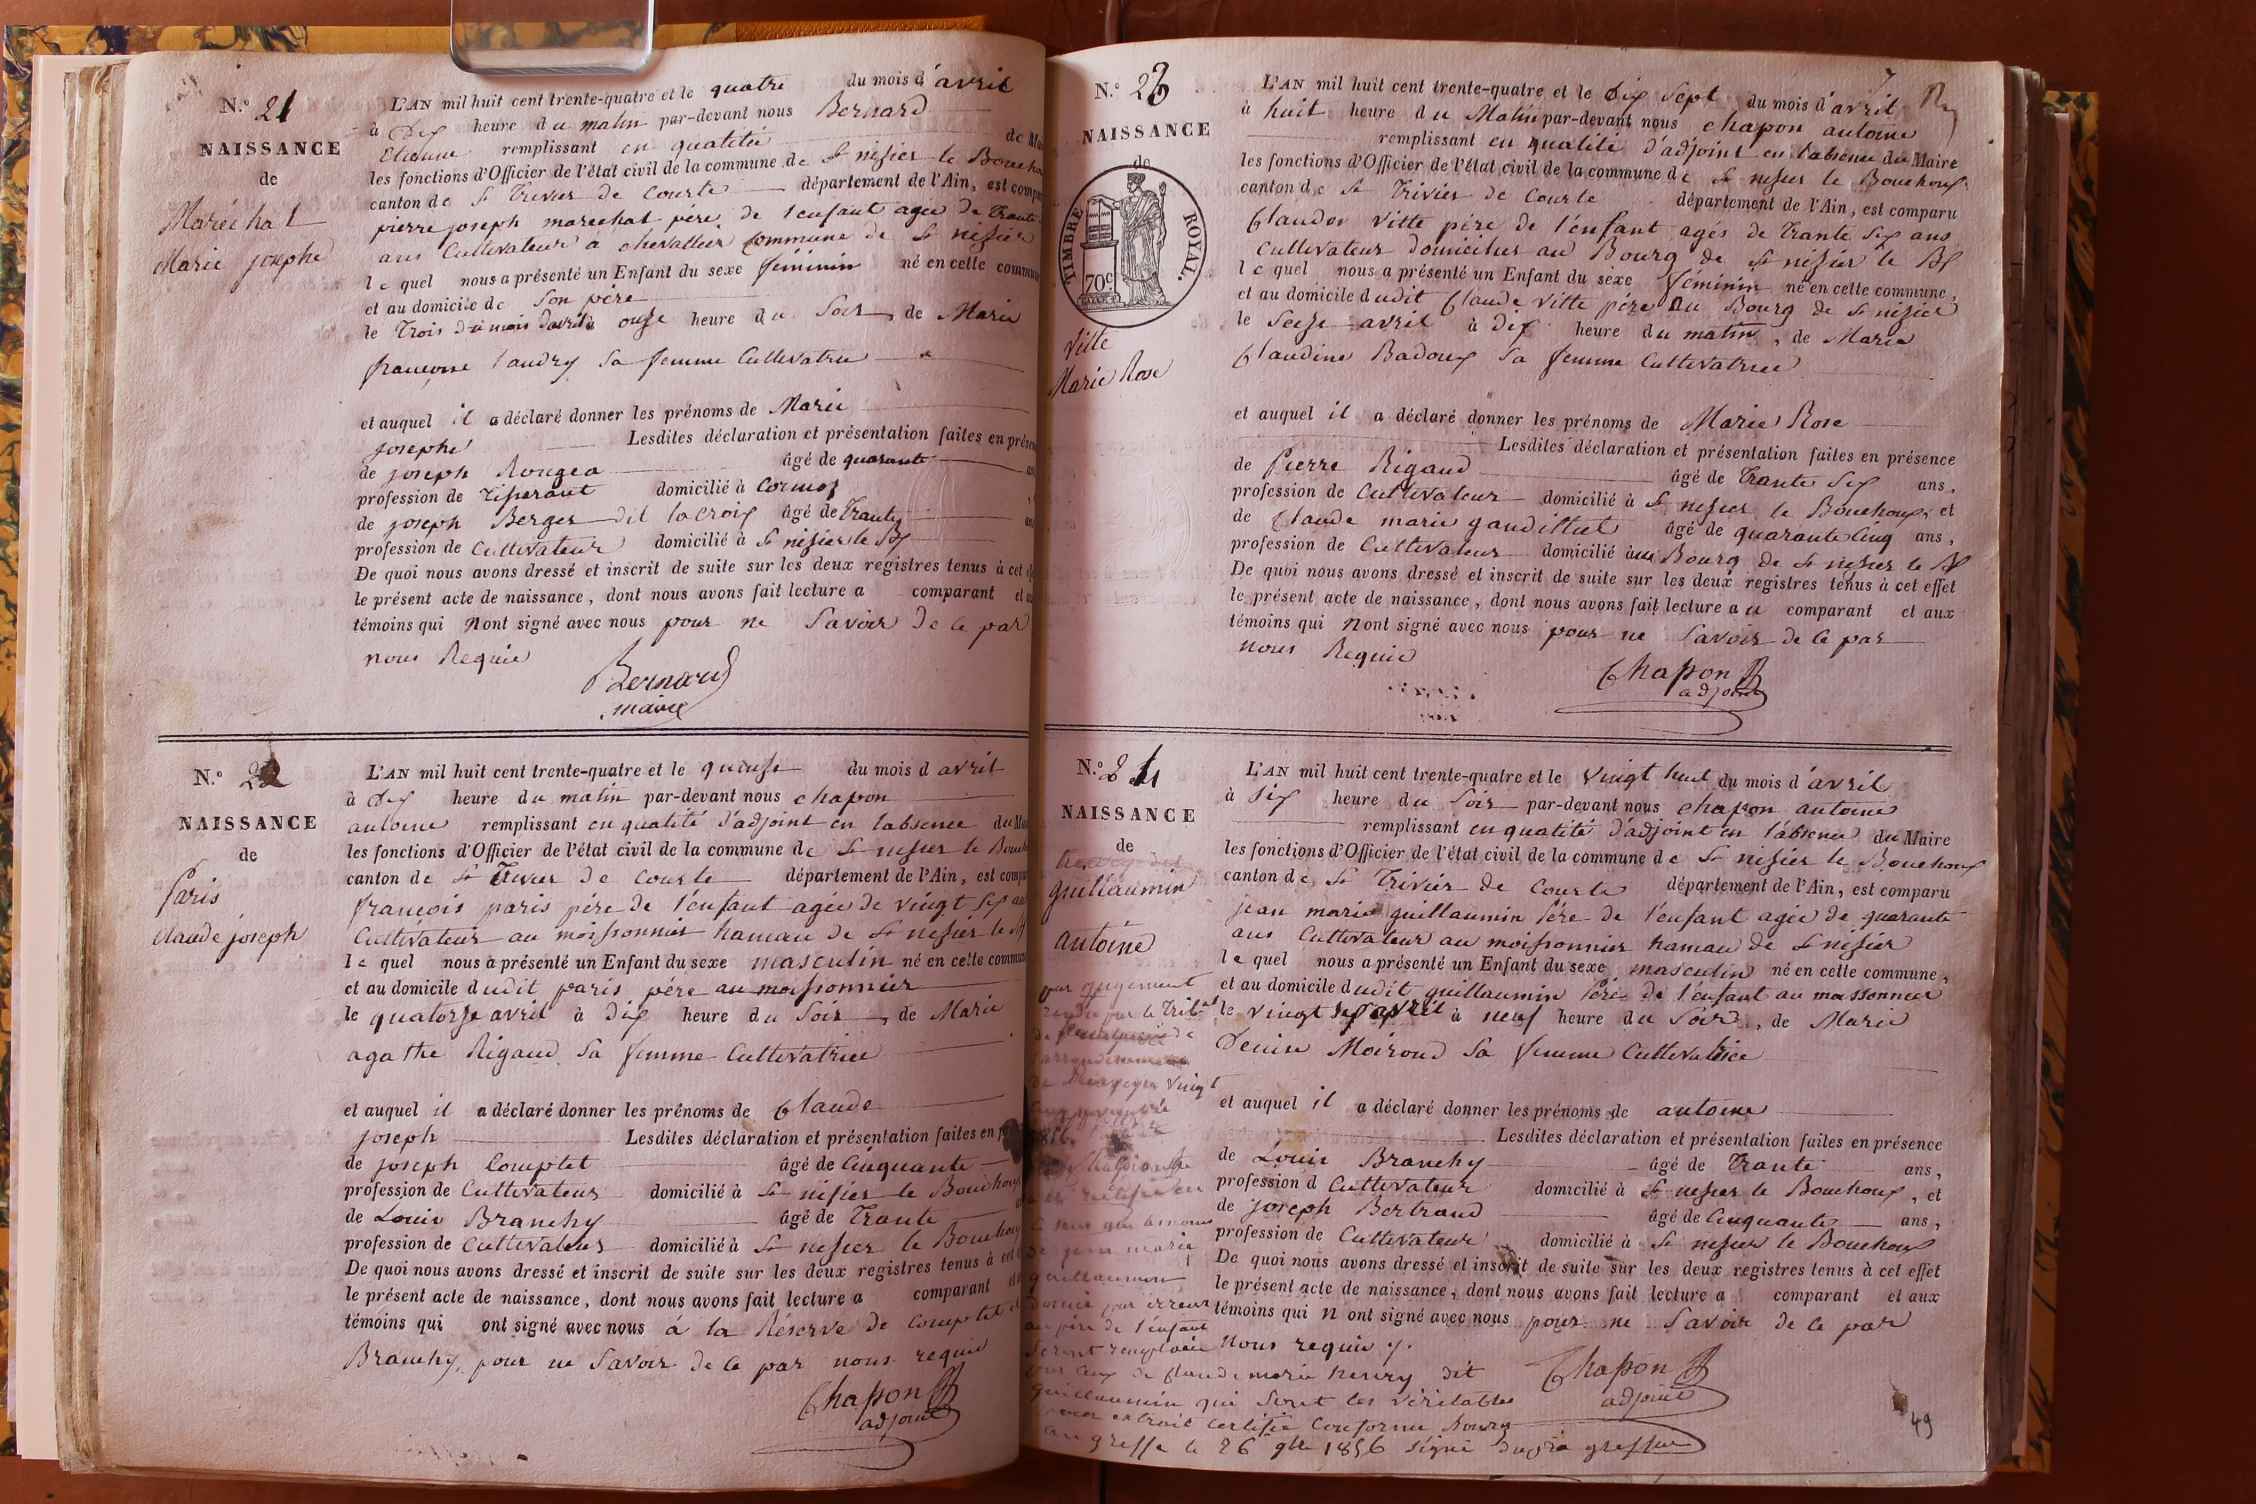 N.° 21
NAISSANCE
de
Maréchal
Marie josephe
L'AN mil huit cent trente-quatre et le quatre du mois d'avril
à Dix heure du matin par-devant nous Bernard
Etienne remplissant en qualitée de
les fonctions d'Officier de l'état civil de la commune de St nisier le
canton de St Trivier de Courte département de l'Ain, est
pierre joseph marechal père de l'enfant agée de trante
ans Cultivateur a chevallier Commune de St nisier
le quel nous a présenté un Enfant du sexe féminin né en cette
et au domicile de Son père
le Trois du mois davril à onse heure du Soir, de Marie
francoise landry Sa femme Cultivatrice
et auquel il a déclaré donner les prénoms de Marie
josephe Lesdites déclaration et présentation faites en
de joseph Rougea âgé de quarante
profession de Tisserant domicilié à Cormoz
de joseph Berger dit lacroix âgé de Trante
profession de Cultivateur domicilié à St nisier le Bx
De quoi nous avons dressé et inscrit de suite sur les deux registres tenus à cet
le présent acte de naissance, dont nous avons fait lecture a comparant et
témoins qui n ont signé avec nous pour ne Savoir De ce par
nous Requis
Bernard
maire
N.° 22
NAISSANCE
de
Paris
claude joseph
L'AN mil huit cent trente-quatre et le quinse du mois d avril
à Dix heure du matin par-devant nous chapon
antoine remplissant en qualité d'adjoint en labsence du
les fonctions d'Officier de l'état civil de la commune de St nisier le
canton de St Trivier De Courte département de l'Ain, est
francois paris père de l'enfant agée de vingt six
Cultivateur au moissonnier hameau de St nisier le Bx
le quel nous a présenté un Enfant du sexe masculin né en cette
et au domicile dudit paris père au moissonnier
le quatorse avril à dix heure du Soir, de Marie
agathe Rigaud Sa femme Cultivatrice
et auquel il a déclaré donner les prénoms de Claude
joseph Lesdites déclaration et présentation faites en
de joseph Comptet âgé de Cinquante
profession de Cultivateur domicilié à St nisier le Bouchoux
de Louis Branchy âgé de Trante
profession de Cultivateur domicilié à St nisier le
De quoi nous avons dressé et inscrit de suite sur les deux registres tenus à cet
le présent acte de naissance, dont nous avons fait lecture a comparant
témoins qui ont signé avec nous à la Réserve de Comptet et
Branchy pour ne Savoir de ce par nous requis
Chapon
adjoint
N.° 23
NAISSANCE
de
TIMBRE ROYAL.
70c
Vitte
Marie Rose
L'AN mil huit cent trente-quatre et le Dix Sept du mois d'avril
à huit heure du Matin par-devant nous chapon antoine
remplissant en qualité d'adjoint en l'absence du Maire
les fonctions d'Officier de l'état civil de la commune de St nisier le Bouchoux
canton de St Trivier de Courte département de l'Ain, est comparu
Claudor Vitte père de l'enfant agés de Trante Six ans
Cultivateur domicilier au Bourg de St nisier le Bx
le quel nous a présenté un Enfant du sexe féminin né en cette commune,
et au domicile dudit Claude Vitte père Au Bourg de St nisier
le Seise avril à Dix heure du matin, de Marie
Claudine Badoux Sa femme Cultivatrice
et auquel il a déclaré donner les prénoms de Marie Rose
Lesdites déclaration et présentation faites en présence
de Pierre Rigaud âgé de Trante Six ans,
profession de Cultivateur domicilié à St nisier le Bouchoux, et
de Claude marie gaudillet âgé de quarante Cinq ans,
profession de Cultivateur domicilié au Bourg de St nisier le Bx
De quoi nous avons dressé et inscrit de suite sur les deux registres tenus à cet effet
le présent acte de naissance, dont nous avons fait lecture a u comparant et aux
témoins qui n ont signé avec nous pour ne Savoir de ce par
nous Requis
Chapon
adjoint
N.° 24
NAISSANCE
de
guillaumin
antoine
L'AN mil huit cent trente-quatre et le vingt huit du mois d'avril
à Six heure du Soir par-devant nous chapon antoine
remplissant en qualité d'adjoint en l'absence du Maire
les fonctions d'Officier de l'état civil de la commune de St nisier le Bouchoux
canton de St Trivier de Courte département de l'Ain, est comparu
jean marie guillaumin Père de l'enfant agée de quarante
ans Cultivateur au moissonnier hameau de St nisier
le quel nous a présenté un Enfant du sexe masculin né en cette commune,
et au domicile dudit guillaumin Père de l'enfant au massonnier
le vingt Sept avril à neuf heure du Soir, de Marie
Denise Moirond Sa femme Cultivatrice
et auquel il a déclaré donner les prénoms de antoine
Lesdites déclaration et présentation faites en présence
de Louis Branchy âgé de Trante ans,
profession d Cultivateur domicilié à St nisier le Bouchoux, et
de joseph Bertrand âgé de Cinquante ans,
profession de Cultivateur domicilié à St nisier le Bouchoux
De quoi nous avons dressé et inscrit de suite sur les deux registres tenus à cet effet
le présent acte de naissance, dont nous avons fait lecture a comparant et aux
témoins qui n ont signé avec nous pour ne Savoir de ce par
nous requis
Chapon
adjoint
par jugement
rendu par le Tribal
de
vingt
1856
rectifié en
ce sens que les noms
de jean marie
guillaumin
donné par erreur
au père de l'enfant
Seront remplacés
par ceux de Claude marie henry dit
guillaumin qui Sont les véritables
pour extrait certifié Conforme Bourg
au greffe le 26 9bre 1856 signé greffier
49